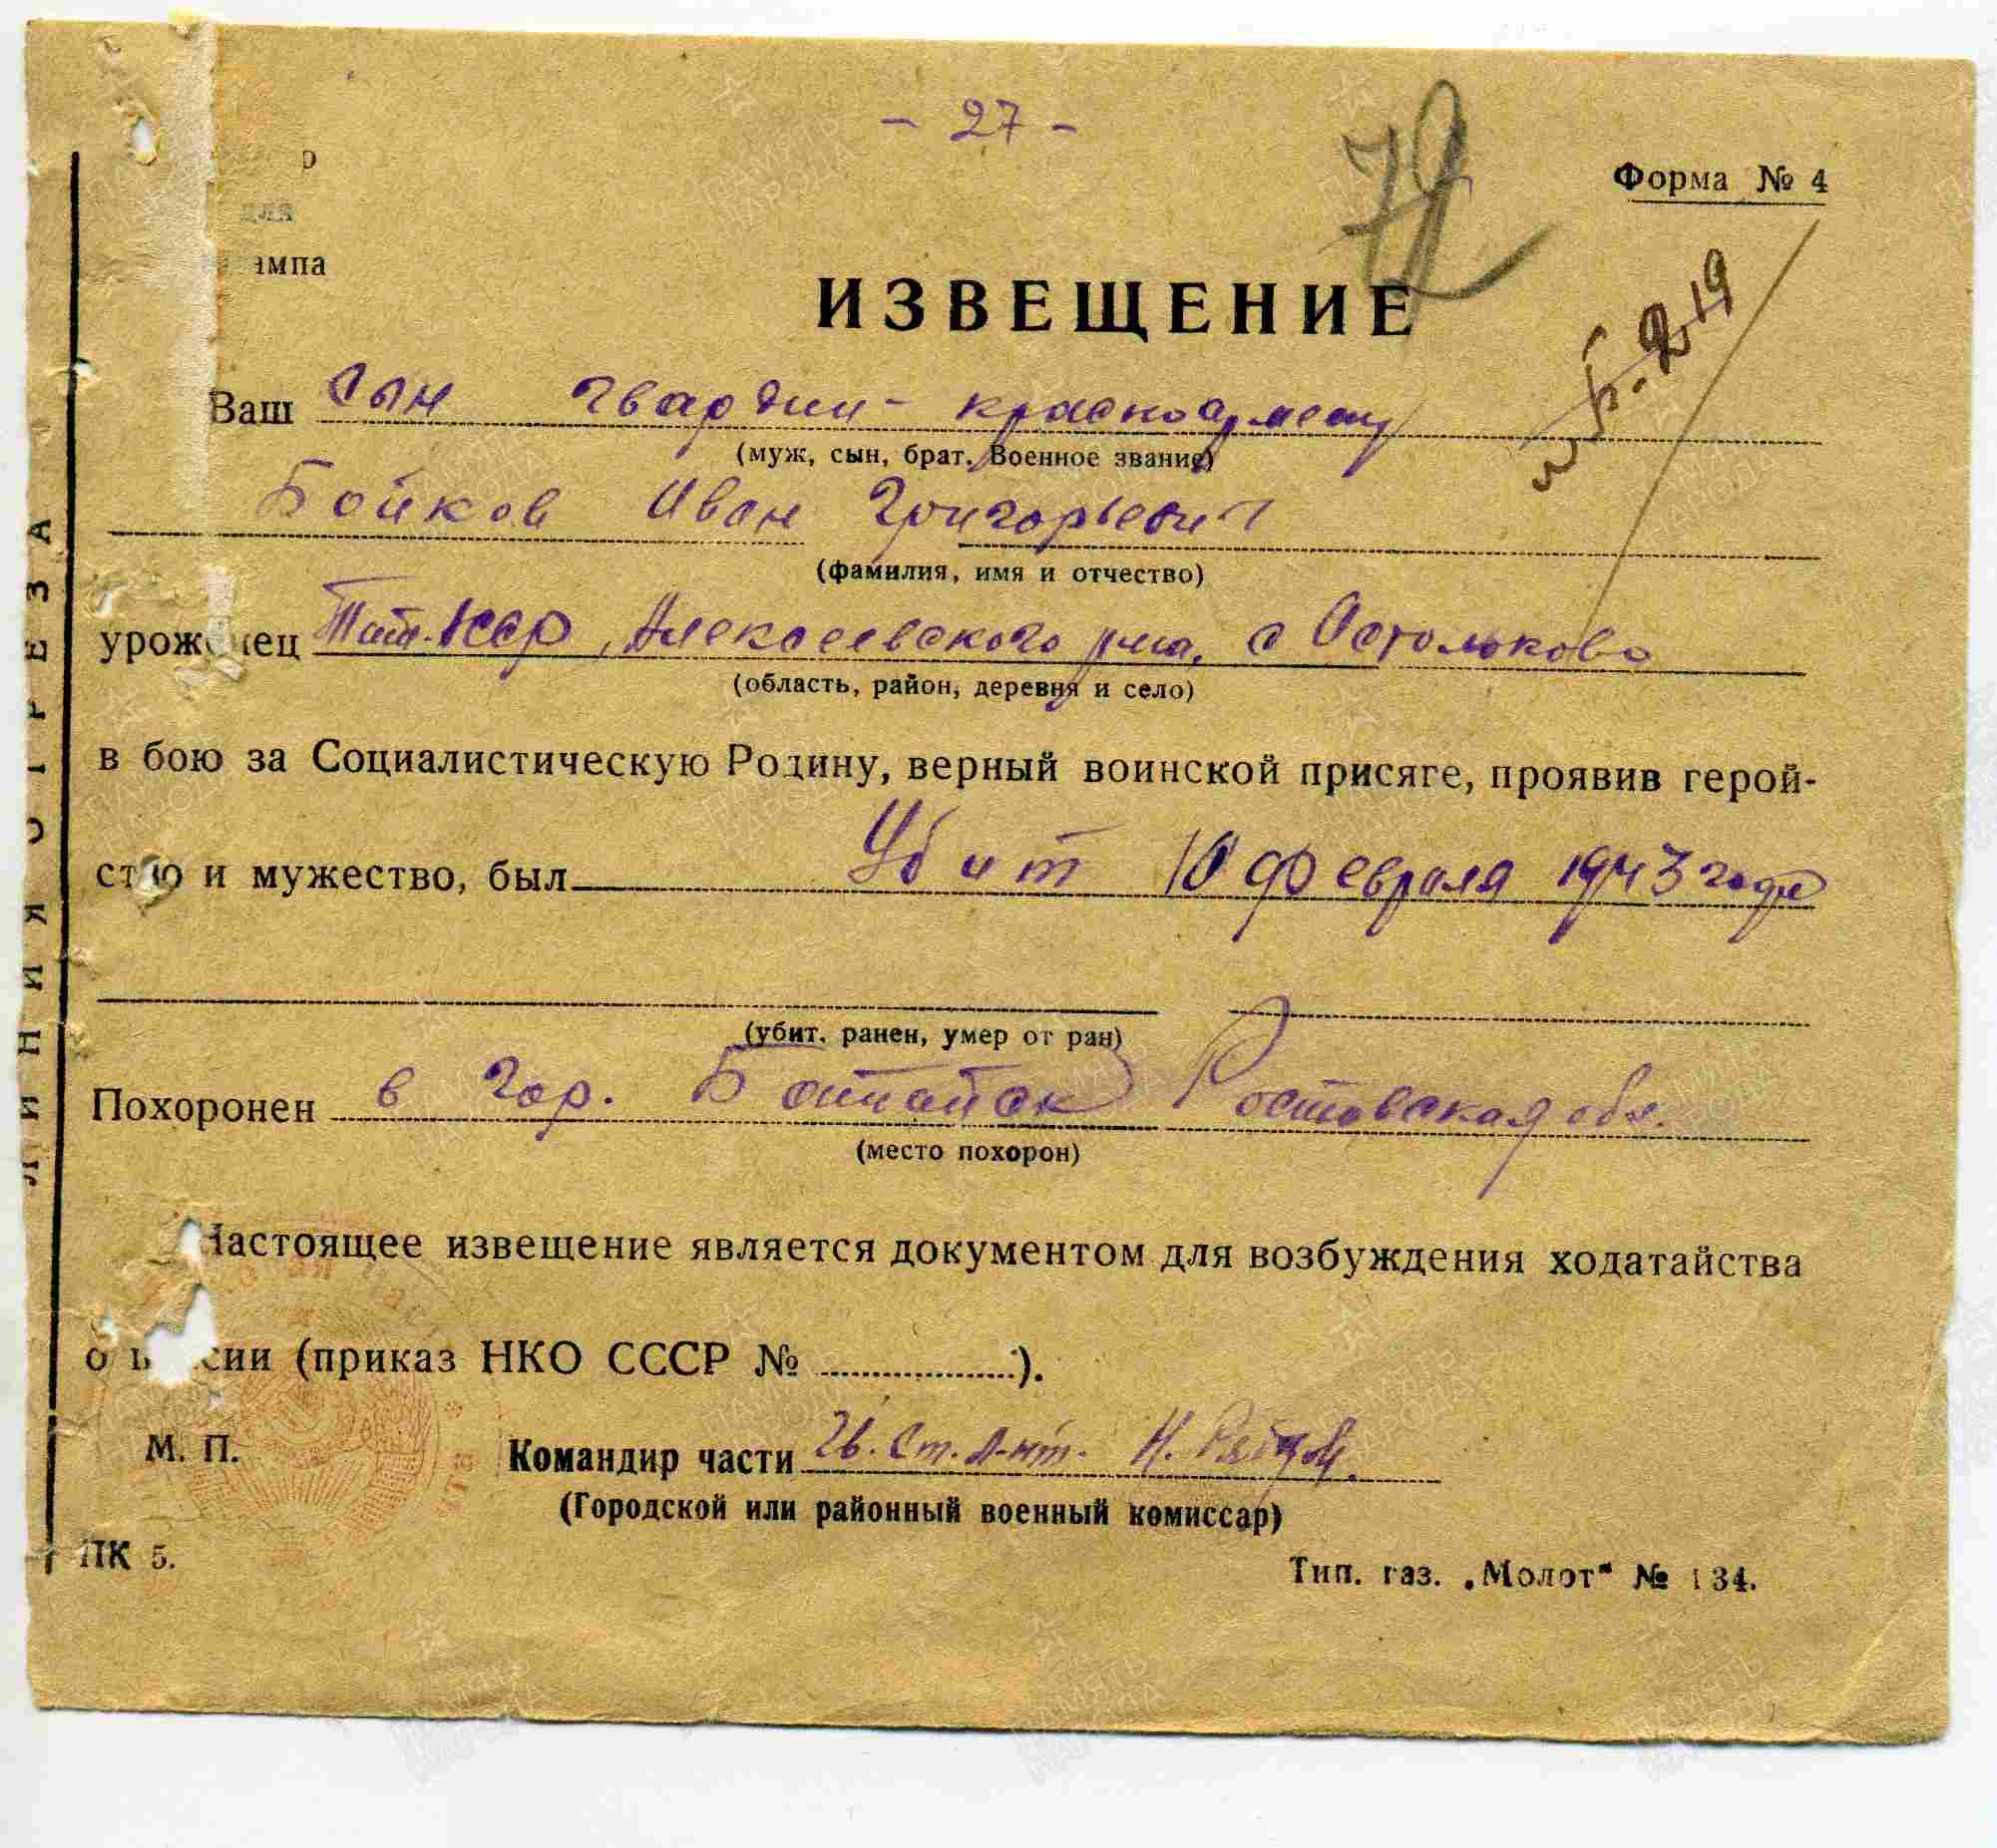 - 27 -
72
Форма № 4
для
ИЗВЕЩЕНИЕ
Ваш сын гвардии - красноармеец
(муж, сын, брат. Военное звание)
Бойков Иван Григорьевич
(фамилия, имя и отчество)
Тат. АССР, Алексеевского р-на, с Остолоково
(область, район, деревня и село)
в бою за Социалистическую Родину, верный воинской присяге, проявив герой-
ство и мужество, был Убит 10 февраля 1943 года
(убит, ранен, умер от ран)
Похоронен в гор. Батайск Ростовская обл.
(место похорон)
Настоящее извещение является документом для возбуждения ходатайства
о (приказ НКО СССР № ).
М. П.
Командир части Гв. Ст. Л-нт.
(Городской или районный военный комиссар)
ПК 5.
Тип. газ. „Молот“ № 134.
ЛИНИЯ ОТРЕЗА